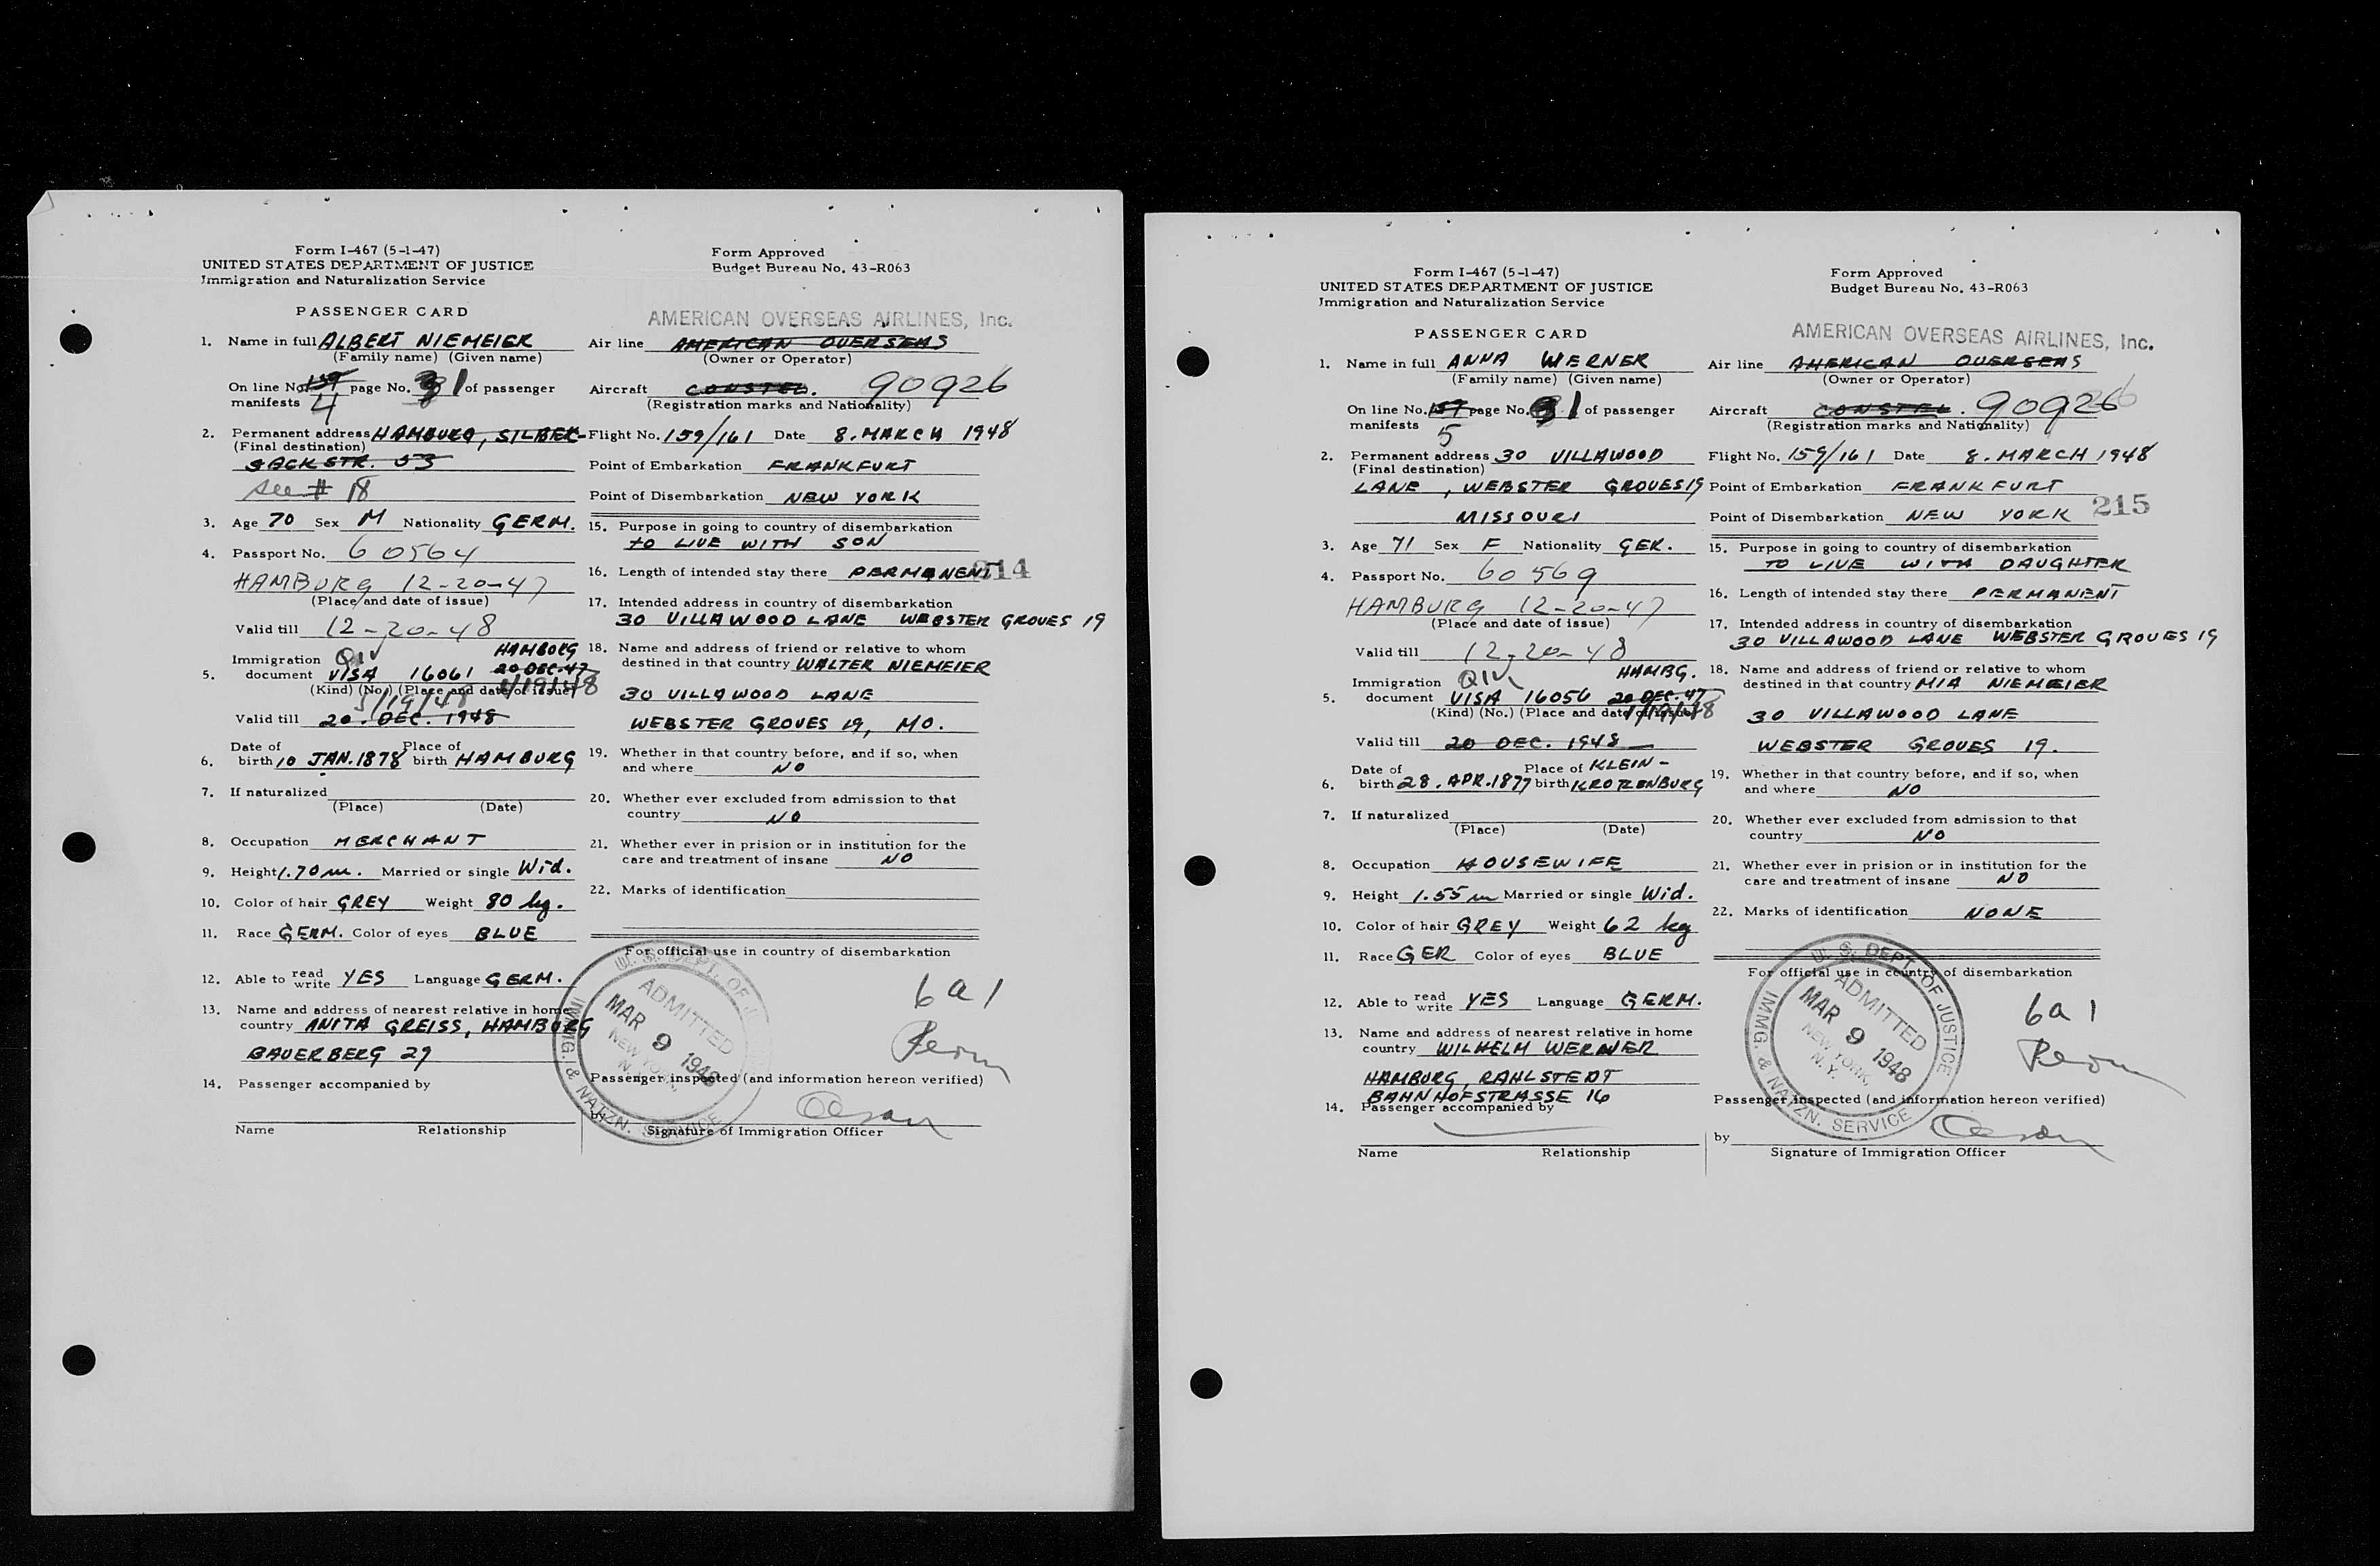 Form I-467 (5-1-47)
UNITED STATES DEPARTMENT OF JUSTICE
Immigration and Naturalization Service
Form Approved
Budget Bureau No. 43-R063
PASSENGER CARD
AMERICAN OVERSEAS AIRLINES, Inc.
1. Name in full ALBERT NIEMEIER
(Family name) (Given name)
On line No. 159 page No. 1 of passenger
manifests 4
2. Permanent address HAMBURG, SILBER-
(Final destination)
SACKSTR. 53
See # 18
3. Age 70 Sex M Nationality GERM.
4. Passport No. 60564
HAMBURG 12-20-47
(Place and date of issue)
Valid till 12-20-48
Immigration QIV HAMBURG
5. document VISA 16061 20 DEC. 47
(Kind) (No.) (Place and date of issue) 1/19/48
5/19/48
Valid till 20. DEC. 1948
Date of Place of
6. birth 10 JAN. 1878 birth HAMBURG
7. If naturalized
(Place) (Date)
8. Occupation MERCHANT
9. Height 1.70 m. Married or single Wid.
10. Color of hair GREY Weight 80 kg.
11. Race GERM. Color of eyes BLUE
12. Able to read write YES Language GERM.
13. Name and address of nearest relative in home
country ANITA GREISS, HAMBURG
BAUERBERG 29
14. Passenger accompanied by
Name Relationship
Air line AMERICAN OVERSEAS
(Owner or Operator)
Aircraft CONSTEL. 90926
(Registration marks and Nationality)
Flight No. 159/161 Date 8. MARCH 1948
Point of Embarkation FRANKFURT
Point of Disembarkation NEW YORK
15. Purpose in going to country of disembarkation
TO LIVE WITH SON
16. Length of intended stay there PERMANENT 214
17. Intended address in country of disembarkation
30 VILLAWOOD LANE WEBSTER GROVES 19
18. Name and address of friend or relative to whom
destined in that country WALTER NIEMEIER
30 VILLAWOOD LANE
WEBSTER GROVES 19, MO.
19. Whether in that country before, and if so, when
and where NO
20. Whether ever excluded from admission to that
country NO
21. Whether ever in prision or in institution for the
care and treatment of insane NO
22. Marks of identification
For official use in country of disembarkation
U. S. DEPT. OF
IMMG. & NATZN. SERVICE
ADMITTED
MAR 9 1948
NEW YORK,
N. Y.
6a1
Perm
Passenger inspected (and information hereon verified)
by
Signature of Immigration Officer
Form I-467 (5-1-47)
UNITED STATES DEPARTMENT OF JUSTICE
Immigration and Naturalization Service
Form Approved
Budget Bureau No. 43-R063
PASSENGER CARD
AMERICAN OVERSEAS AIRLINES, Inc.
1. Name in full ANNA WERNER
(Family name) (Given name)
On line No. 159 page No. 1 of passenger
manifests 5
2. Permanent address 30 VILLAWOOD
(Final destination)
LANE, WEBSTER GROVES 19
MISSOURI
3. Age 71 Sex F Nationality GER.
4. Passport No. 60569
HAMBURG 12-20-47
(Place and date of issue)
Valid till 12-20-48
Immigration QIV HAMBG.
5. document VISA 16056 20 DEC. 47
(Kind) (No.) (Place and date of issue) 1/19/48
Valid till 20 DEC. 1948
Date of Place of KLEIN-
6. birth 28. APR. 1877 birth KROTZENBURG
7. If naturalized
(Place) (Date)
8. Occupation HOUSEWIFE
9. Height 1.55 m Married or single Wid.
10. Color of hair GREY Weight 62 kg
11. Race GER Color of eyes BLUE
12. Able to read write YES Language GERM.
13. Name and address of nearest relative in home
country WILHELM WERNER
HAMBURG, RAHLSTEDT
BAHNHOFSTRASSE 16
14. Passenger accompanied by
Name Relationship
Air line AMERICAN OVERSEAS
(Owner or Operator)
Aircraft CONSTEL. 90926
(Registration marks and Nationality)
Flight No. 159/161 Date 8. MARCH 1948
Point of Embarkation FRANKFURT
Point of Disembarkation NEW YORK 215
15. Purpose in going to country of disembarkation
TO LIVE WITH DAUGHTER
16. Length of intended stay there PERMANENT
17. Intended address in country of disembarkation
30 VILLAWOOD LANE WEBSTER GROVES 19
18. Name and address of friend or relative to whom
destined in that country MIA NIEMEIER
30 VILLAWOOD LANE
WEBSTER GROVES 19.
19. Whether in that country before, and if so, when
and where NO
20. Whether ever excluded from admission to that
country NO
21. Whether ever in prision or in institution for the
care and treatment of insane NO
22. Marks of identification NONE
For official use in country of disembarkation
U. S. DEPT OF JUSTICE
IMMG. & NATZN. SERVICE
ADMITTED
MAR 9 1948
NEW YORK,
N. Y.
6a1
Perm
Passenger inspected (and information hereon verified)
by
Signature of Immigration Officer